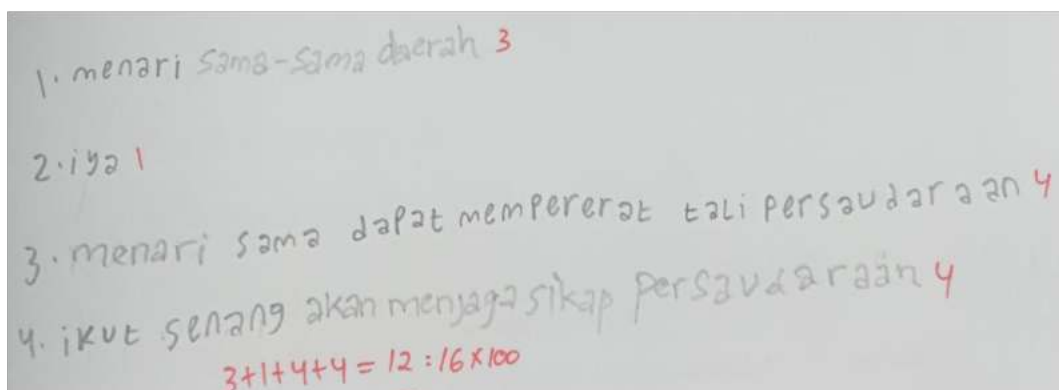 1. menari sama-sama daerah 3
2. iya 1
3. menari sama dapat mempererat tali persaudaraan 4
4. ikut senang akan menjaga sikap persaudaraan 4
3+1+4+4 = 12 : 16 x 100